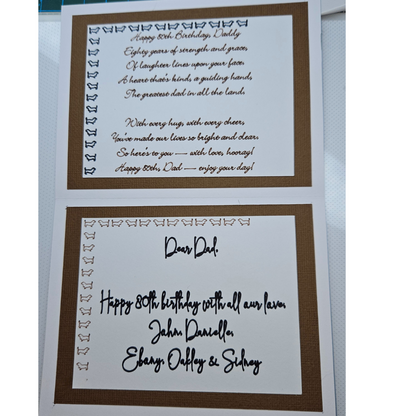 Happy 80th Birthday, Daddy
Eighty years of strength and grace,
Of laughter lines upon your face.
A heart that's kind, a guiding hand,
The greatest dad in all the land.
With every hug, with every cheer,
You've made our lives so bright and clear.
So here's to you — with love, hooray!
Happy 80th, Dad — enjoy your day!
Dear Dad,
Happy 80th birthday with all our love,
John, Danielle,
Ebony, Oakley & Sidney